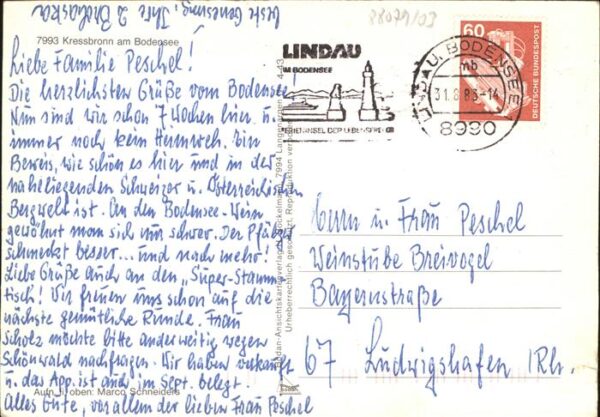 beste Genesung, Ihre 2 Brohaska
88079/03
7993 Kressbronn am Bodensee
Liebe Familie Peschel!
Die herzlichsten Grüße vom Bodensee
Nun sind wir schon 7 Wochen hier u.
immer noch kein Heimweh. Ein
Beweis, wie schön es hier und in der
naheliegenden Schweizer u. Österreichischen
Bergwelt ist. An den Bodensee-Wein
gewöhnt man sich nur schwer. Der Pfälzer
schmeckt besser... und nach mehr!
Liebe Grüße auch an den "Super-Stamm-
tisch! Wir freuen uns schon auf die
nächste gemütliche Runde. Frau
Scholz möchte bitte anderweitig wegen
Schönwald nachfragen. Wir haben verkauft
u. das App. ist auch im Sept. belegt.
Aufn. oben: Marco Schneiders
Alles Gute, vor allem der lieben Frau Peschel
Urheberrechtlich geschützt. Reproduktion
7994 Langenargen
LINDAU
IM BODENSEE
FERIENINSEL DER LEBENSFREUDE
LINDAU, BODENSEE
mb
31.8.83-14
8990
60
DEUTSCHE BUNDESPOST
Herrn u. Frau Peschel
Weinstube Breivogel
Bayernstraße
67 Ludwigshafen /Rh.